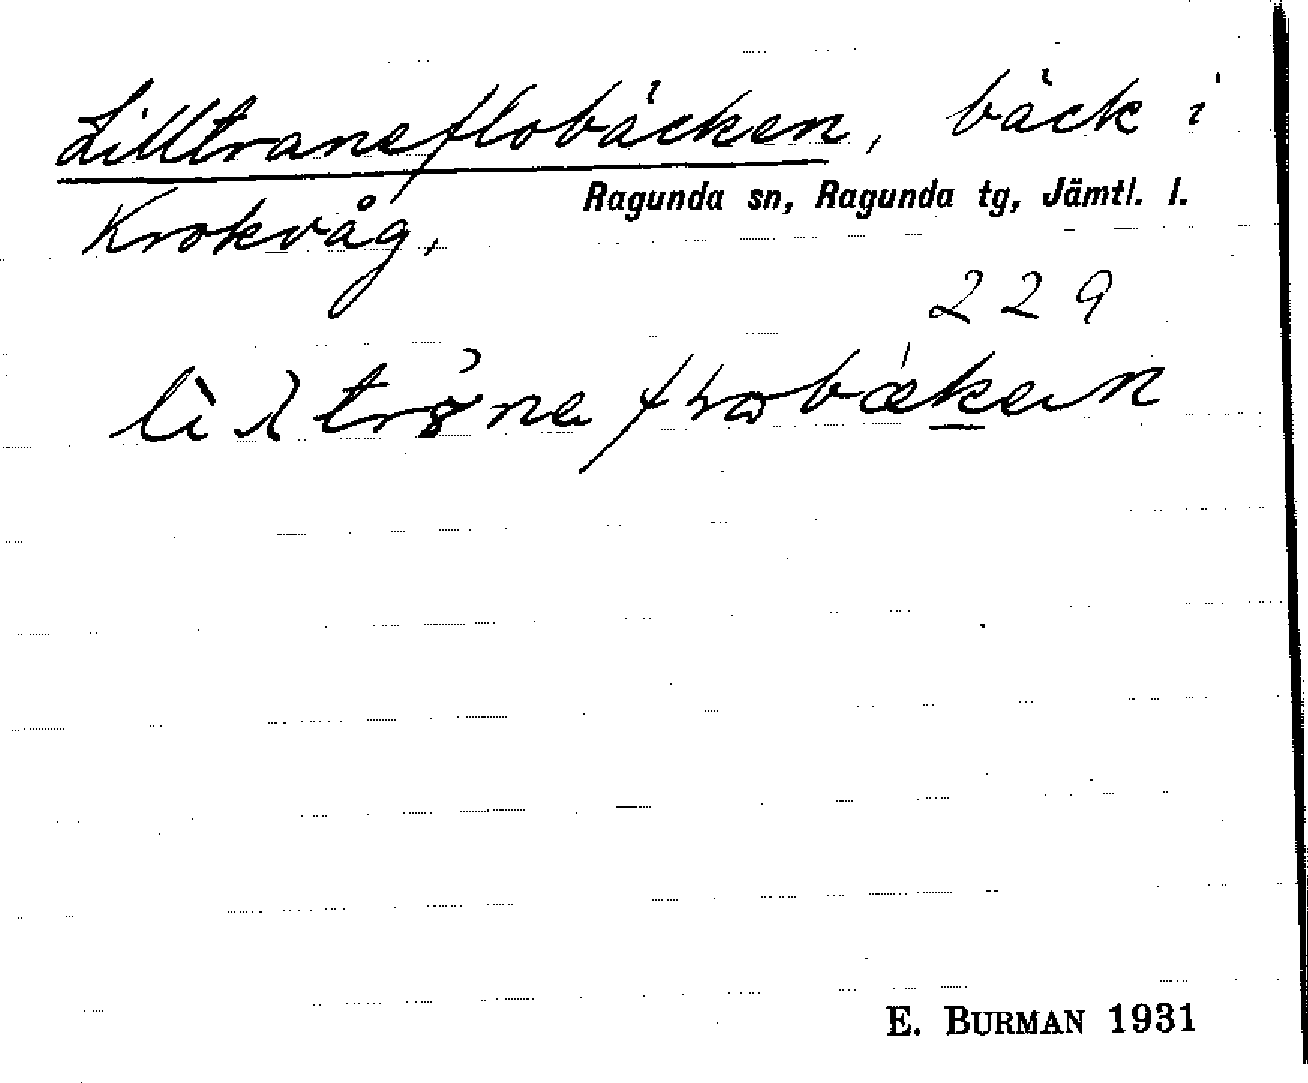 Lilltraneflobäcken, bäck i
Ragunda sn, Ragunda tg, Jämtl. l.
Krokvåg.
229
E. BURMAN 1931